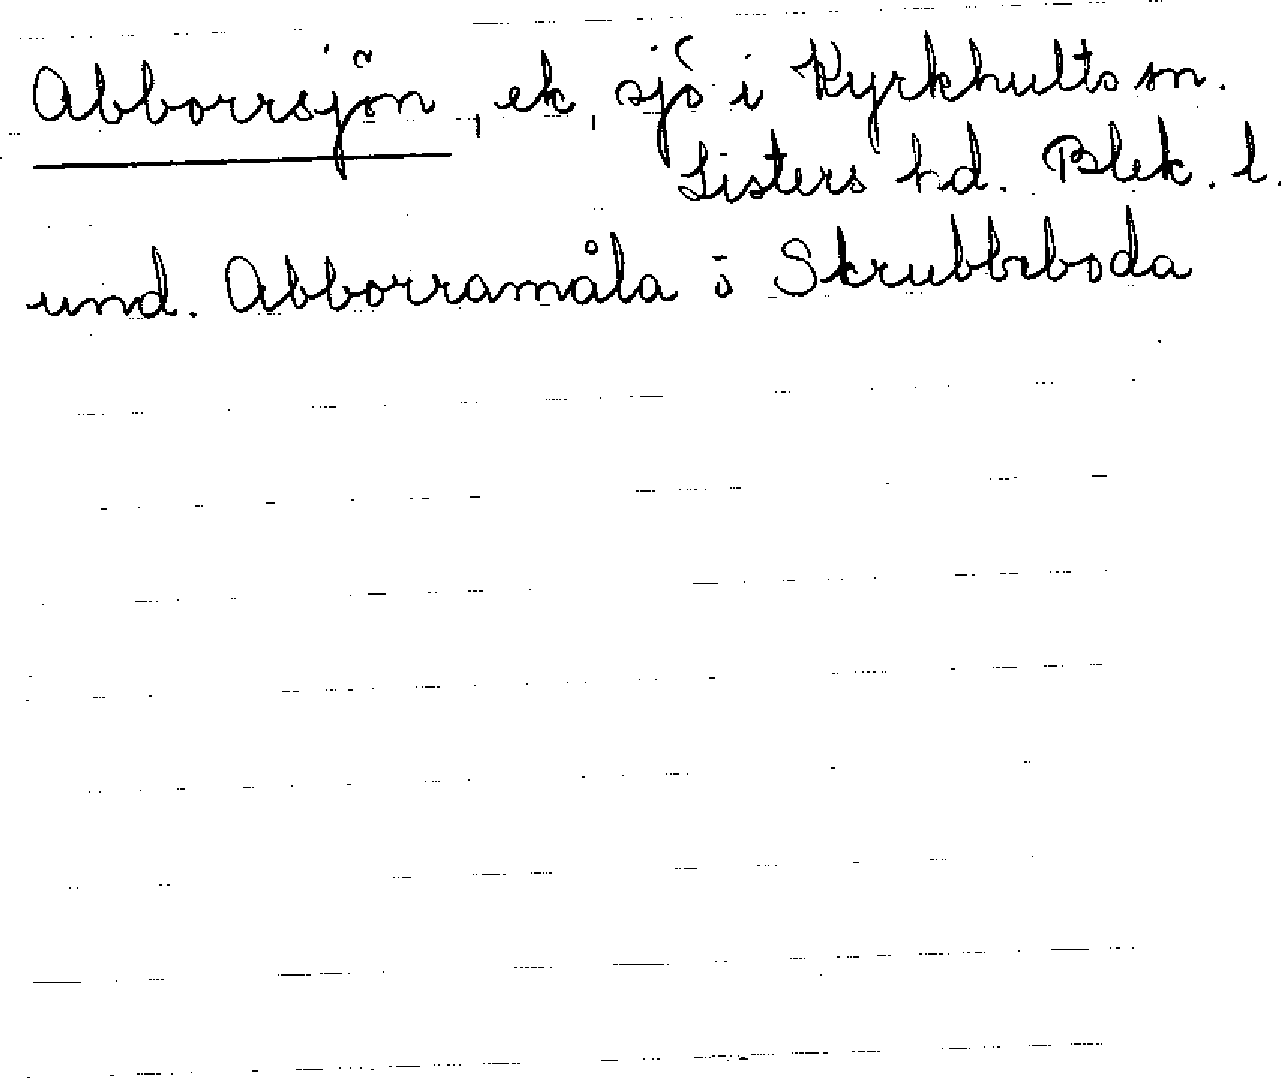 Abborrsjön, ek, sjö i Kyrkhults sn.
Listers hd. Blek. l.
und. Abborramåla ö Skrubbeboda